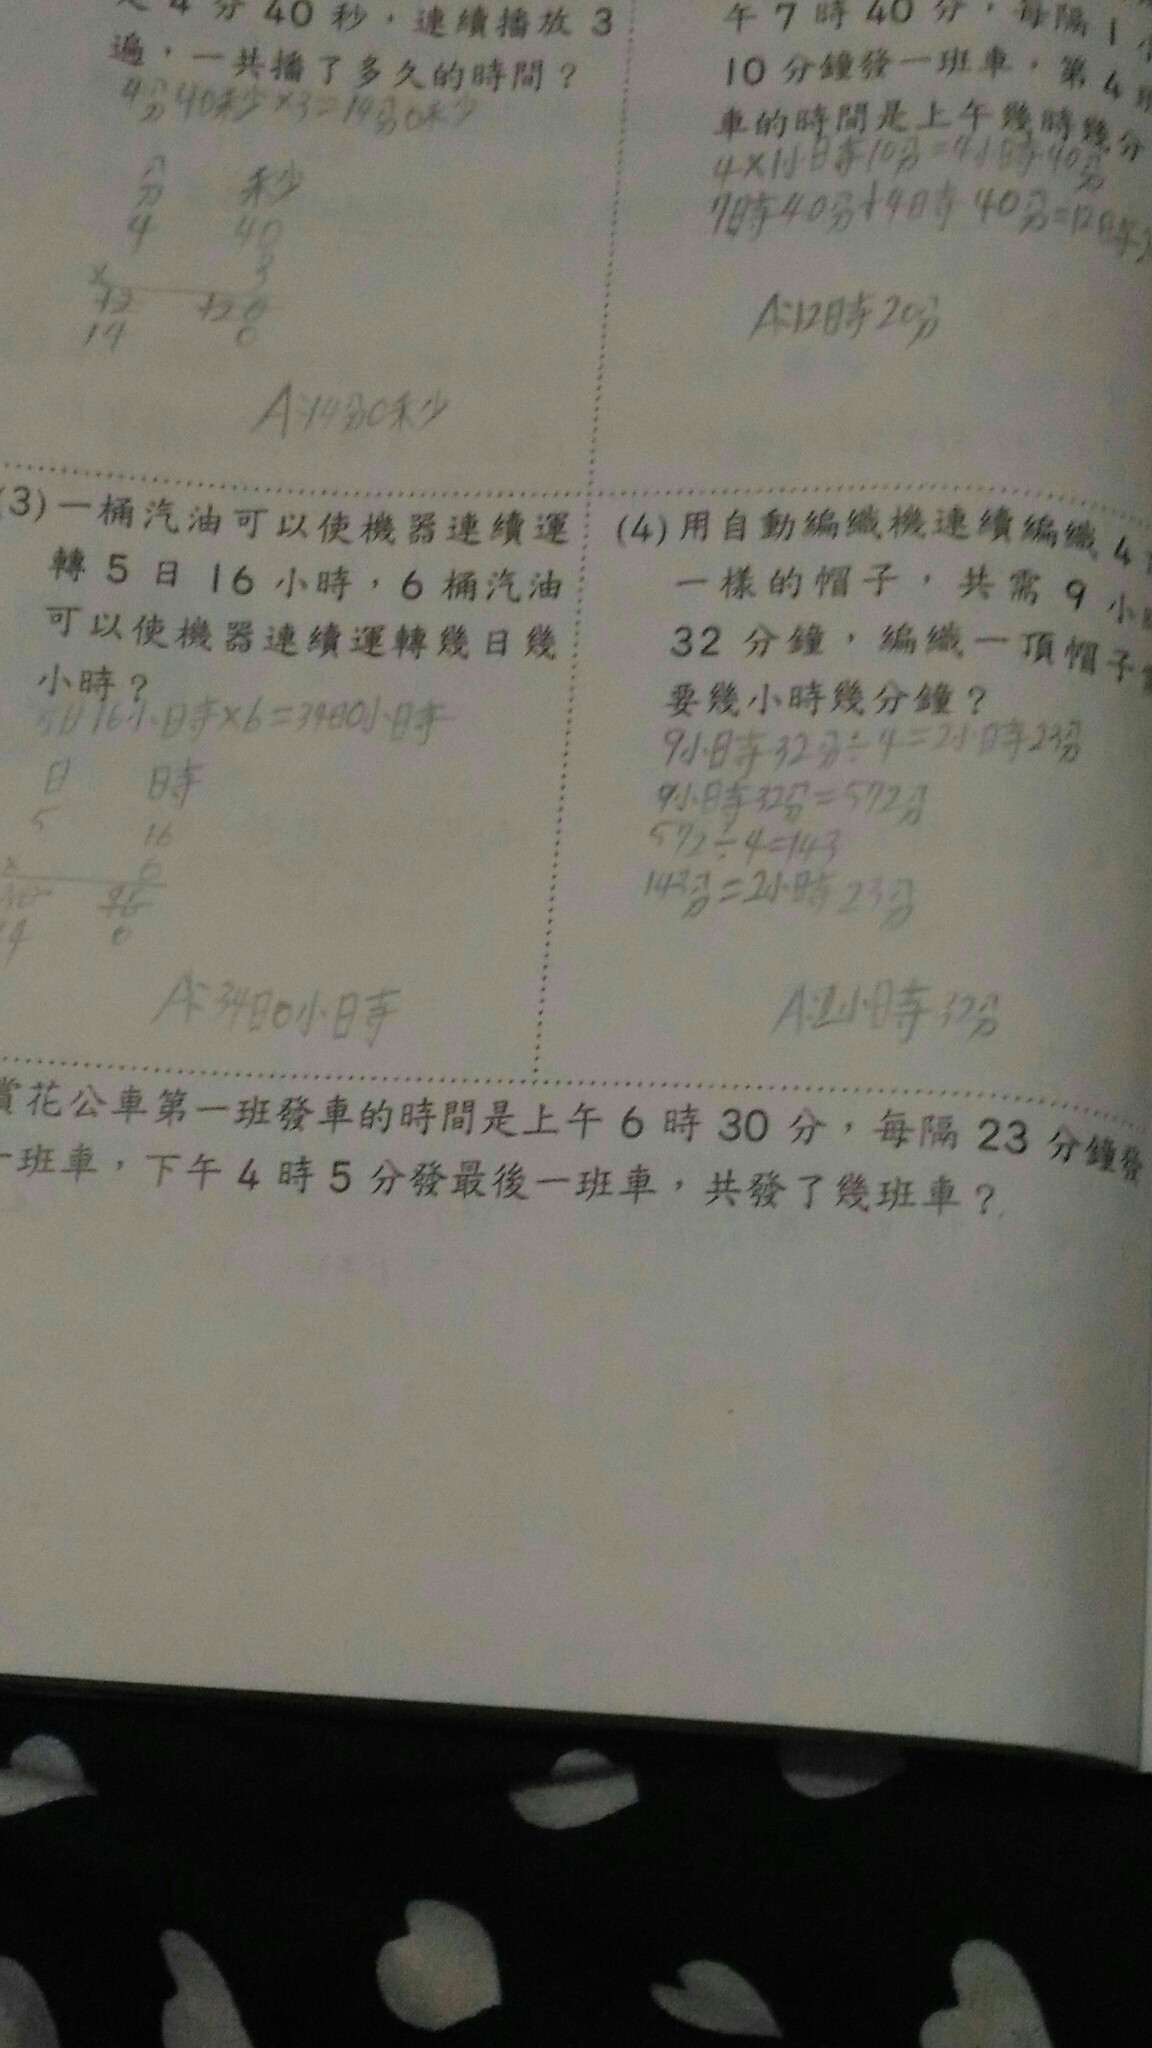 4 分 40 秒，連續播放 3
遍，一共播了多久的時間？
4分40秒×3=14分0秒
分 秒
4 40
× 3
12 120
14 0
A:14分0秒
午 7 時 40 分，每隔 1
10 分鐘發一班車，第 4
車的時間是上午幾時幾分
4×1小時10分=4小時40分
7時40分+4時40分=12時
A:12時20分
(3) 一桶汽油可以使機器連續運
轉 5 日 16 小時，6 桶汽油
可以使機器連續運轉幾日幾
小時？
5日16小時×6=34日0小時
日 時
5 16
× 6
30 96
4 0
A:34日0小時
(4) 用自動編織機連續編織 4
一樣的帽子，共需 9 小
32 分鐘，編織一頂帽子
要幾小時幾分鐘？
9小時32分÷4=2小時23分
9小時32分=572分
572÷4=143
143分=2小時23分
A:2小時32分
賞花公車第一班發車的時間是上午 6 時 30 分，每隔 23 分鐘發
一班車，下午 4 時 5 分發最後一班車，共發了幾班車？